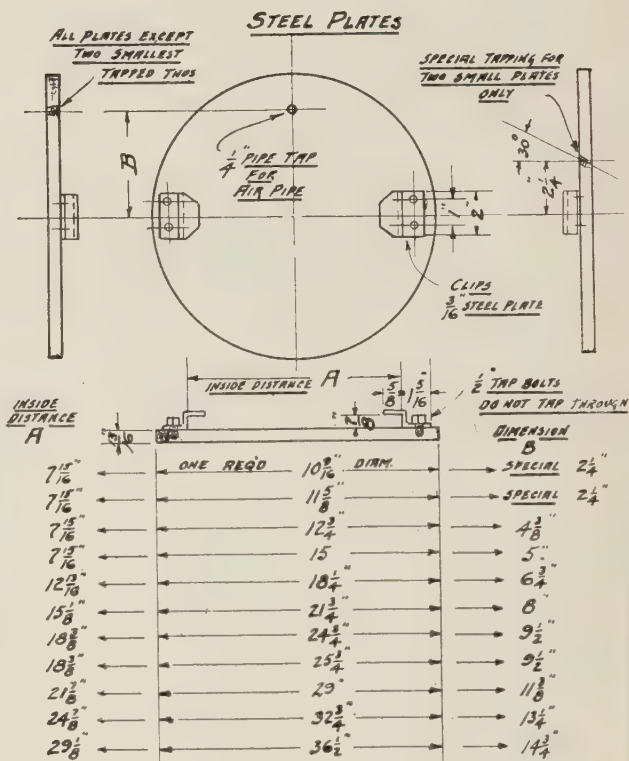 STEEL PLATES
ALL PLATES EXCEPT
TWO SMALLEST
TAPPED THUS
SPECIAL TAPPING FOR
TWO SMALL PLATES
ONLY
30°
B
1/4" PIPE TAP
FOR
AIR PIPE
1"
2"
2 1/4"
CLIPS
3/16" STEEL PLATE
INSIDE DISTANCE A
5/8" 1 5/16"
1/2" TAP BOLTS
DO NOT TAP THROUGH
7/8"
INSIDE
DISTANCE
A
DIMENSION
B
7 15/16" ONE REQ'D 10 9/16" DIAM. SPECIAL 2 1/4"
7 15/16" 11 5/8" SPECIAL 2 1/4"
7 15/16" 12 3/4" 4 3/8"
7 15/16" 15 5"
12 13/16" 18 1/4" 6 3/4"
15 1/8" 21 3/4" 8"
18 3/8" 24 3/4" 9 1/2"
18 3/8" 25 3/4" 9 1/2"
21 7/8" 29" 11 3/8"
24 7/8" 32 3/4" 13 1/4"
29 1/8" 36 1/2" 14 3/4"